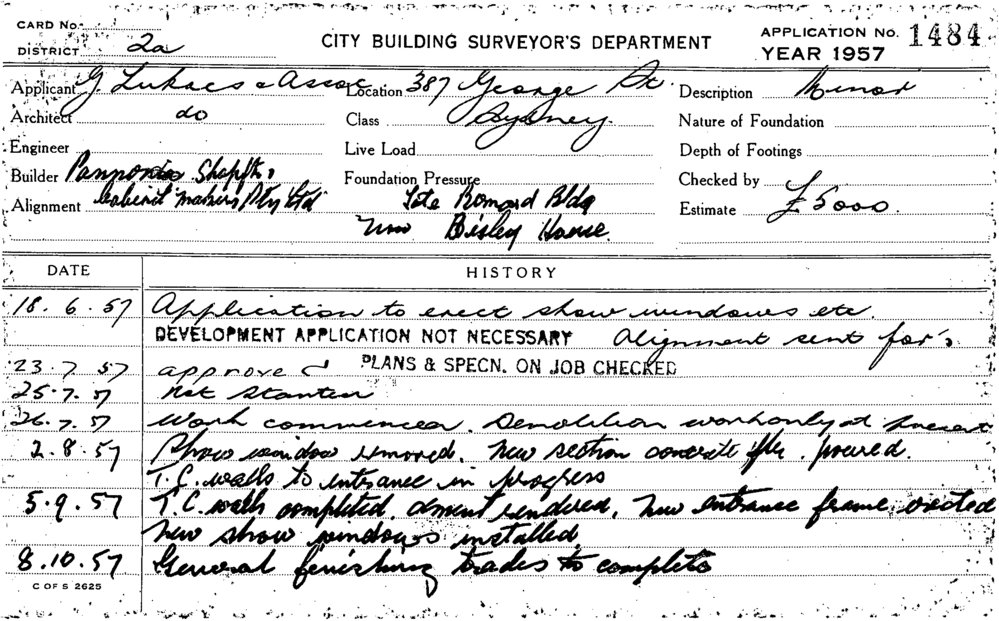 CARD No.
DISTRICT 2a
CITY BUILDING SURVEYOR'S DEPARTMENT
APPLICATION No. 1484
YEAR 1957
Applicant G. Lukacs & Assoc Location 387 George St Description Minor
Architect do Class Sydney Nature of Foundation
Engineer Live Load Depth of Footings
Builder Pannonia Shopftrs Foundation Pressure Checked by
Alignment Cabinet makers Pty Ltd late Romano Bldg Estimate £5000.
now Bisley House.
DATE HISTORY
18.6.57 Application to erect show windows etc.
DEVELOPMENT APPLICATION NOT NECESSARY Alignment sent for.
23.7.57 approved PLANS & SPECN. ON JOB CHECKED
25.7.57 Not Started
26.7.57 Work commenced. Demolition work only at present
2.8.57 Show window removed. New section concrete flr. poured.
T.C. walls to entrance in progress
5.9.57 T.C. walls completed, cement rendered, New entrance frame erected
new show windows installed
8.10.57 General finishing trades to complete
C OF S 2625